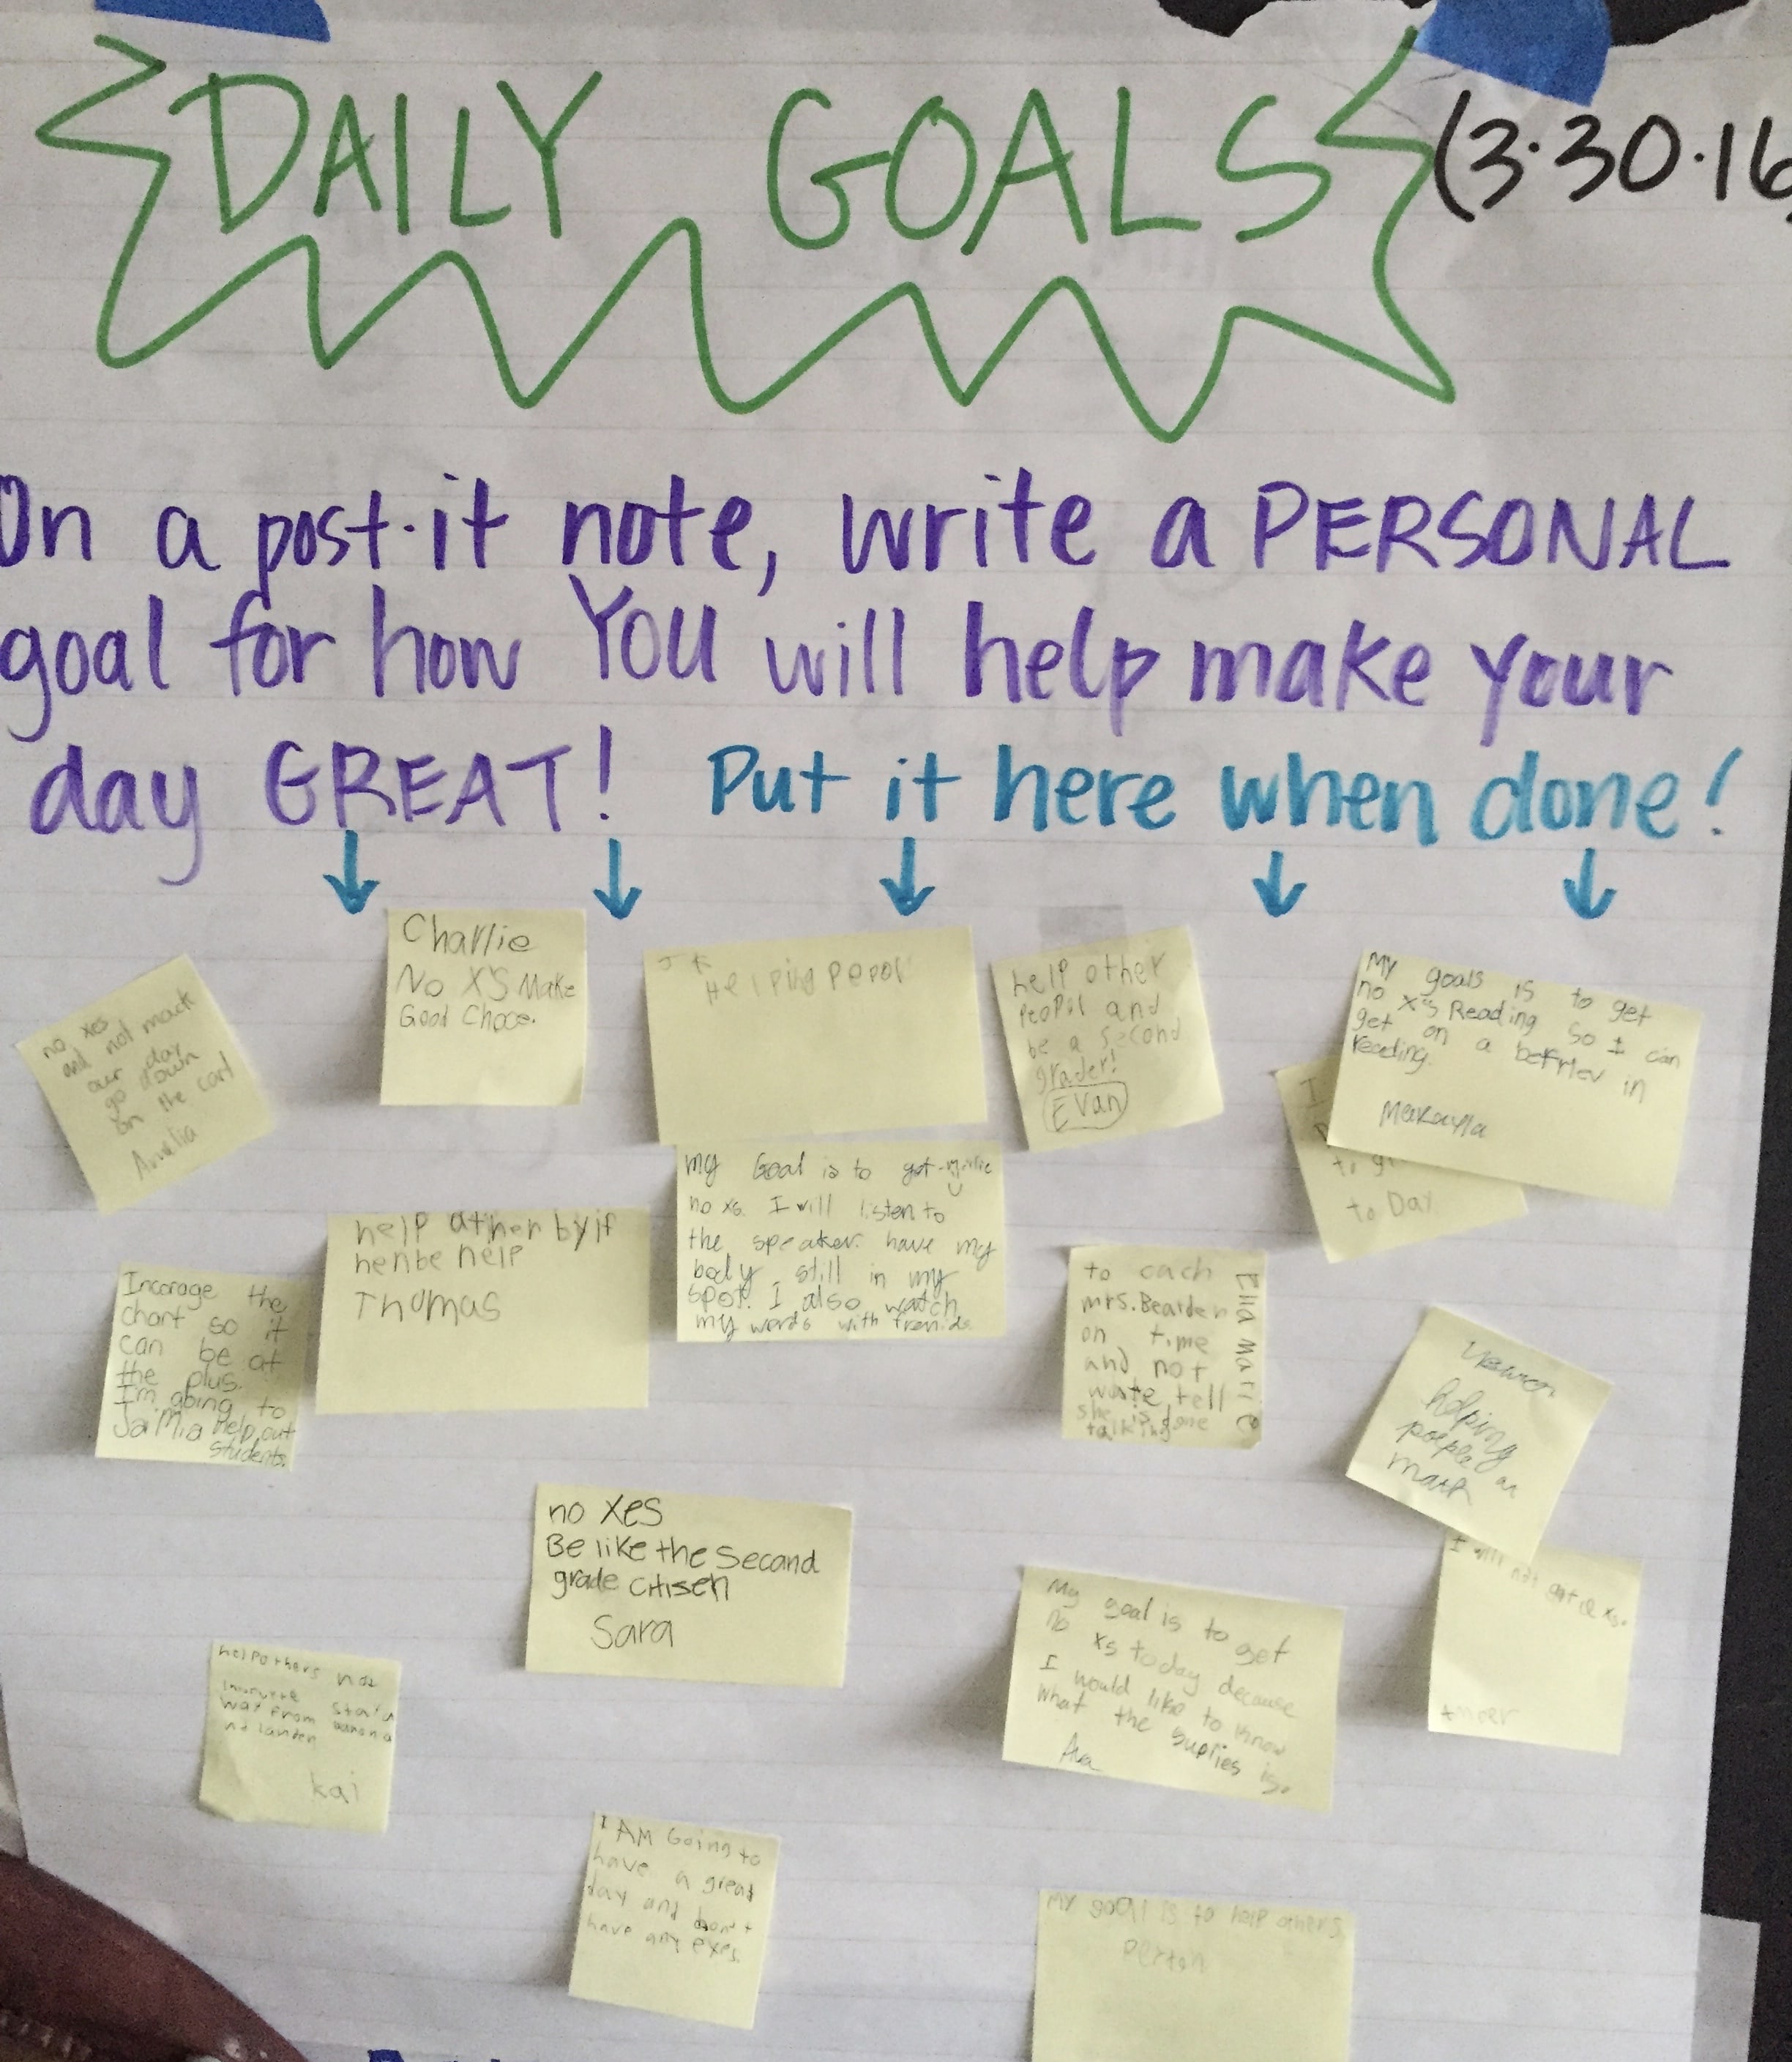 DAILY GOALS (3.30.16)
On a post-it note, write a PERSONAL
goal for how YOU will help make your
day GREAT! Put it here when done!
no xes
and not mack
our day
go down
on the cart
Amelia
Charlie
No X'S Make
Good Choce.
JK
Helping Pepol
help other
PeoPil and
be a second
grader!
Evan
My goals is to get
no X's Reading so I can
get on a in
reading.
Makayla
I
to
to Day
my Goal is to get
no xs. I will listen to
the speaker. have my
body still in my
spot. I also watch
my words with
help ather by if
henbe help
Thomas
Incorage the
chart so it
can be at
the plus.
I'm going to
JaiMia help out
students.
to each
mrs. Bearden
on time
and not
wate tell
she is done
talking
Ella Marie
helping
poeple
math
no xes
Be like the Second
grade citisen
Sara
I will not get xs.
My goal is to get
no xs today because
I would like to know
what the suplies is.
Ava
help others not
way from
landen
Kai
I AM Going to
have a great
day and don't
have any exes.
My goal is to help others